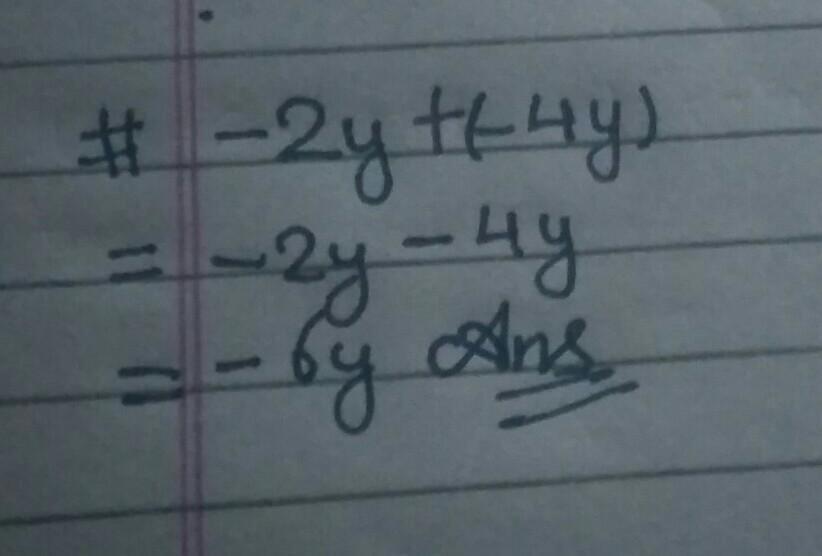 # -2y+(-4y)
= -2y - 4y
= - 6y Ans